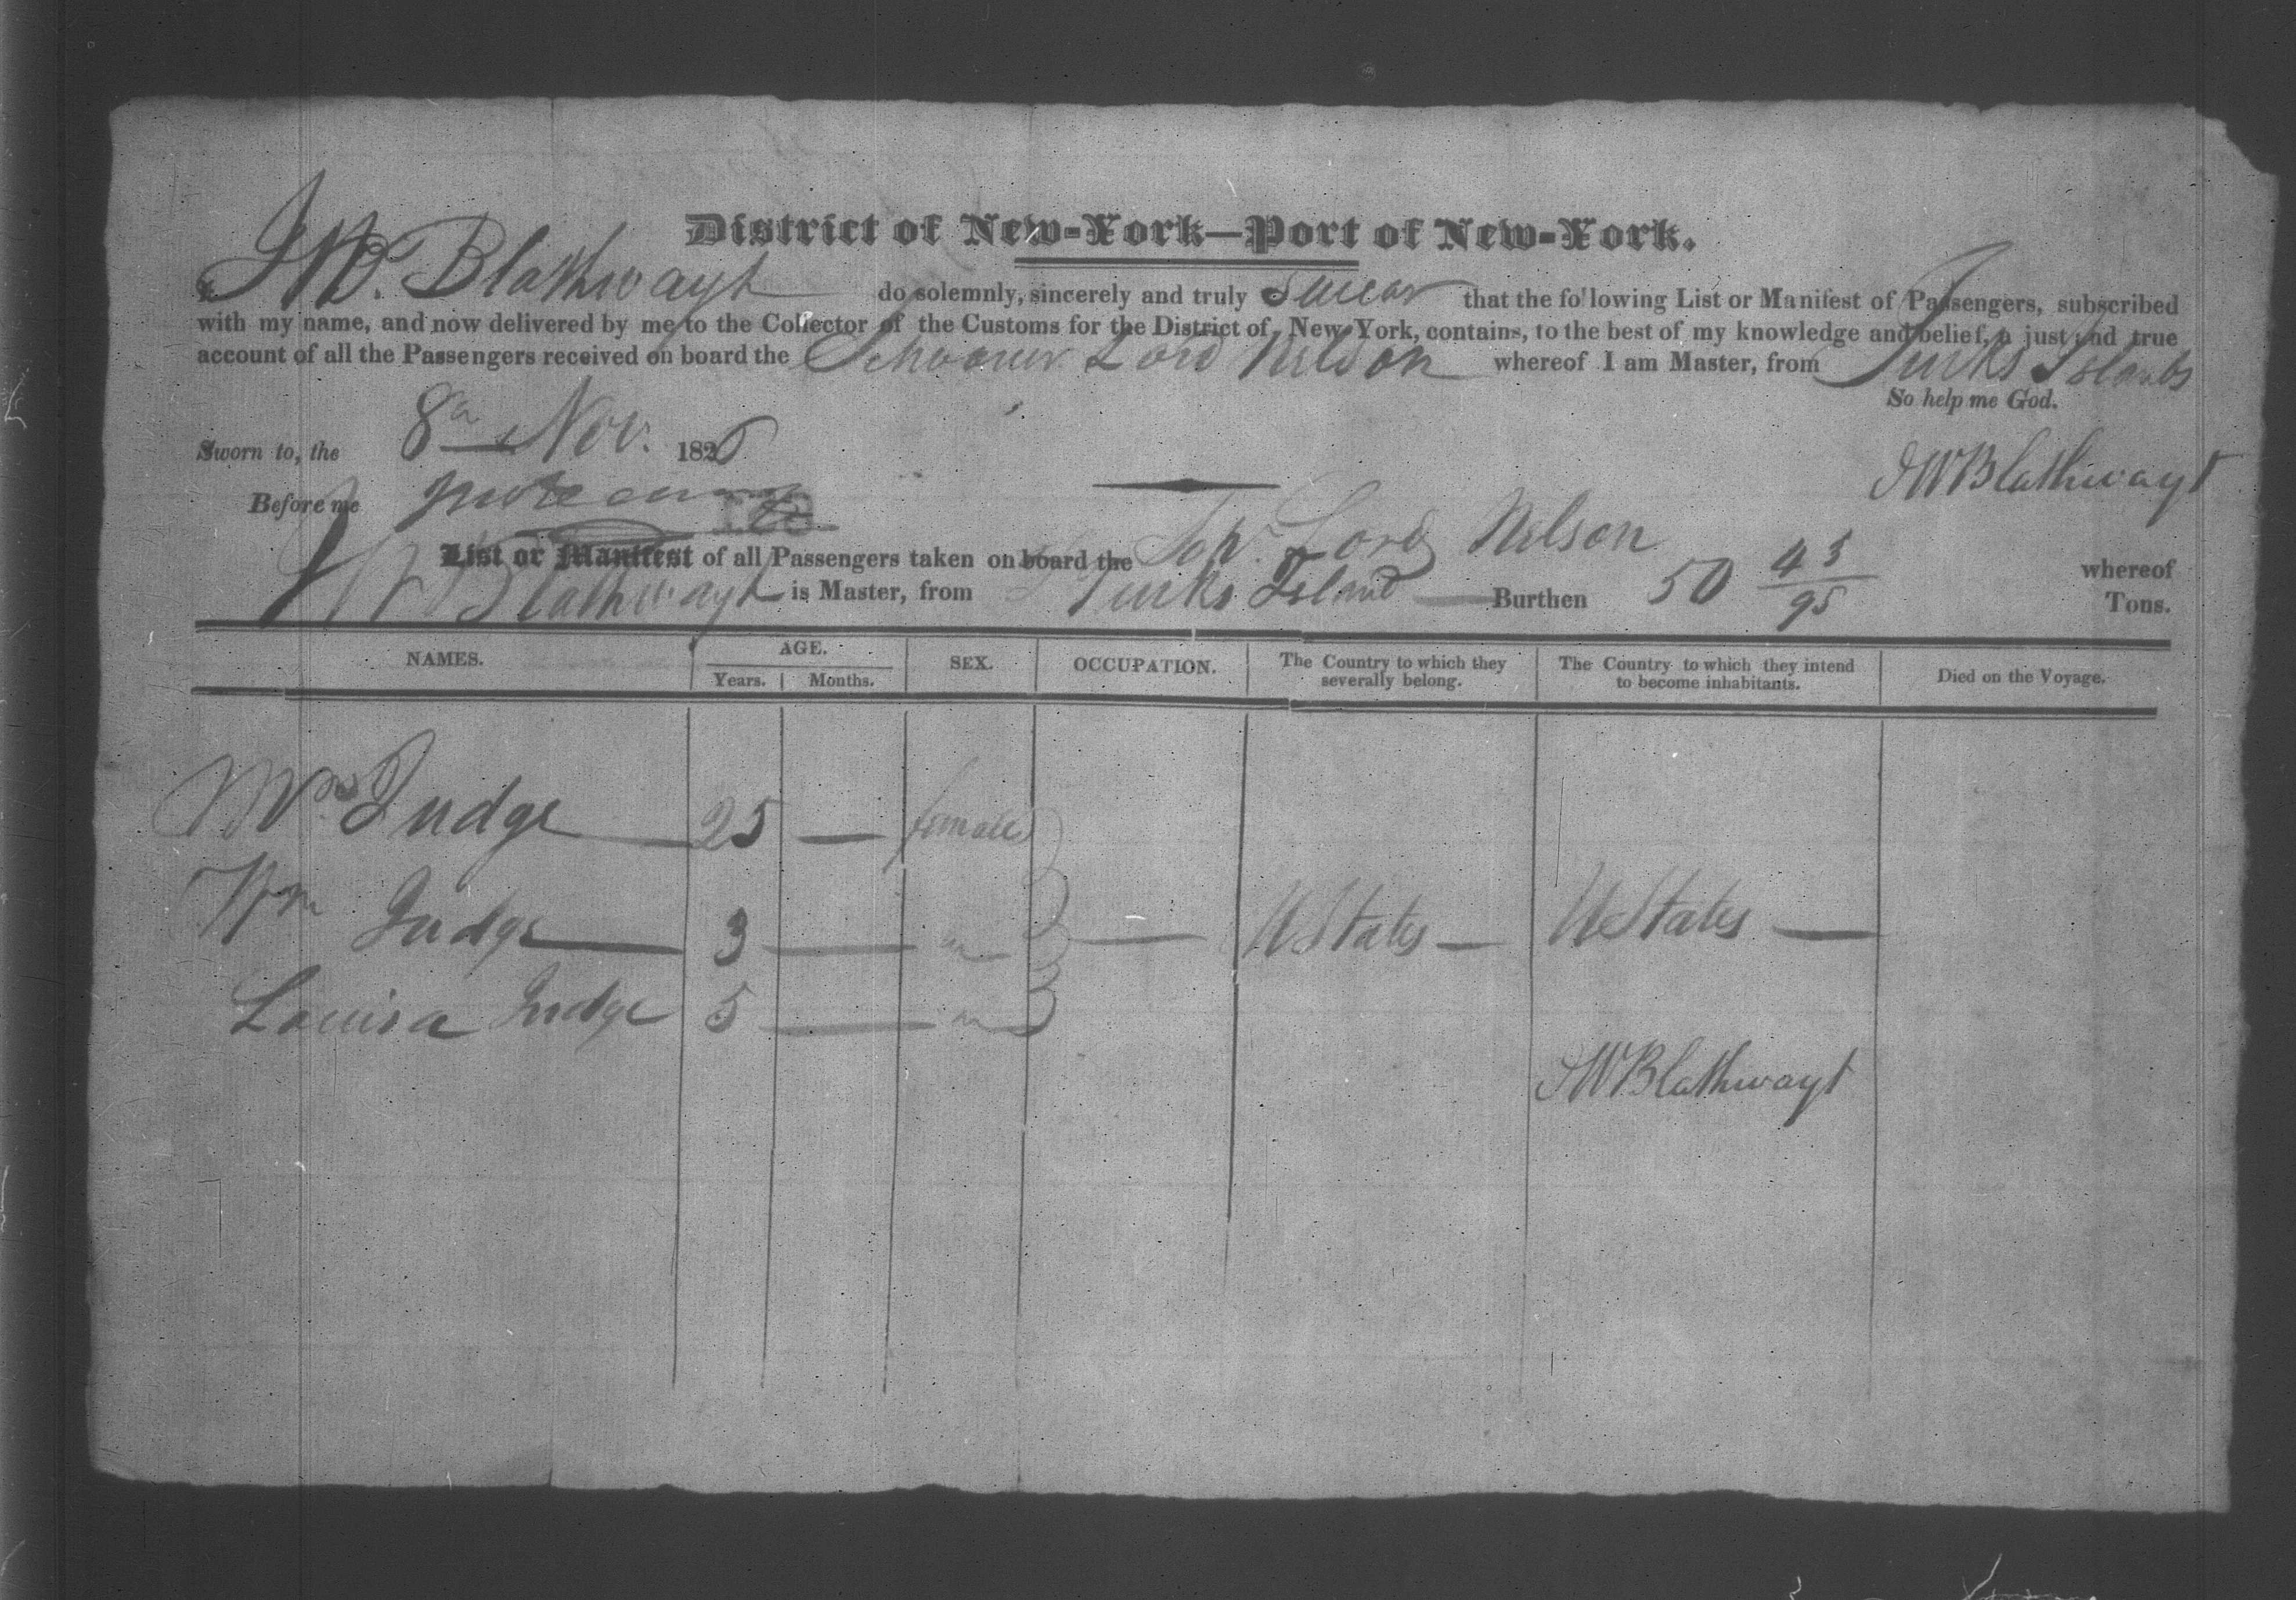 District of New-York—Port of New-York.
J W. Blathwayt do solemnly, sincerely and truly Swear that the following List or Manifest of Passengers, subscribed
with my name, and now delivered by me to the Collector of the Customs for the District of New-York, contains, to the best of my knowledge and belief, a just and true
account of all the Passengers received on board the Schooner Lord Nelson whereof I am Master, from Turks Islands
So help me God.
Sworn to, the 8th Nov. 1826
JWBlathwayt
Before me
List or Manifest of all Passengers taken on board the Schr. Lord Nelson whereof
J W Blathwayt is Master, from Turks Island — Burthen 50 43/95 Tons.
NAMES. AGE. SEX. OCCUPATION. The Country to which they severally belong. The Country to which they intend to become inhabitants. Died on the Voyage.
Years. Months.
Mrs. Judge 25 — female
Wm Judge 3 — — UStates — UStates —
Louisa Judge 5 —
JWBlathwayt